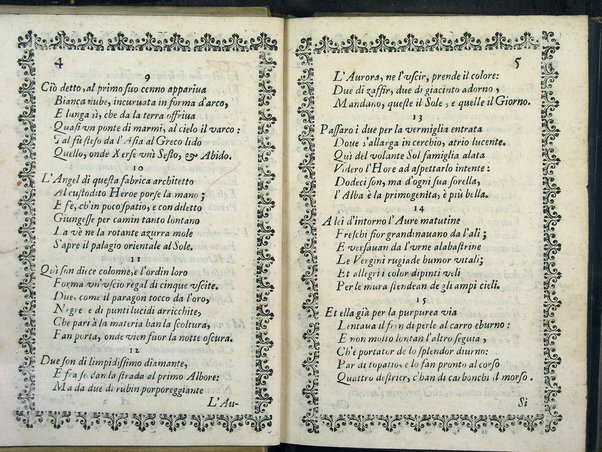 4
9
Ciò detto, al primo suo cenno appariua
Bianca nube, incuruata in forma d'arco,
E lunga sì, che da la terra offriua
Quasi vn ponte di marmi, al cielo il varco:
Tal fù steso da l'Asia al Greco lido
Quello, onde Xerse vnì Sesto, & Abido.
10
L'Angel di questa fabrica architetto
Al custodito Heroe porse la mano;
E fe, ch'in poco spatio, e con diletto
Giungesse per camin tanto lontano
La vè ne la rotante azurra mole
S'apre il palagio orientale al Sole.
11
Quì son diece colonne, e l'ordin loro
Forma vn'vscio regal di cinque vscite.
Due, come il paragon tocco da l'oro,
Negre e di punti lucidi arricchite,
Che pari à la materia han la scoltura,
Fan porta, onde vien fuor la notte oscura.
12
Due son di limpidissimo diamante,
E fra se dan la strada al primo Albore:
Ma da due di rubin porporeggiante
L'Au-
5
L'Aurora, ne l'vscir, prende il colore:
Due di zaffir, due di giacinto adorno,
Mandano, queste il Sole, e quelle il Giorno.
13
Passaro i due per la vermiglia entrata
Doue s'allarga in cerchio, atrio lucente.
Quì del volante Sol famiglia alata
Videro l'Hore ad aspettarlo intente:
Dodeci son, ma d'ogni sua sorella,
l'Alba è la primogenita, è più bella.
14
A lei d'intorno l'Aure matutine
Freschi fior grandinauano da l'ali;
E versauan da l'vrne alabastrine
Le Vergini rugiade humor vitali;
Et allegri i color dipinti veli
Per le mura stendean de gli ampi cieli.
15
Et ella già per la purpurea via
Lentaua il fren di perle al carro eburno:
E non molto lontan l'altro seguia,
Ch'e portator de lo splendor diurno:
Par di topatio, e lo fan pronto al corso
Quattro destrier, c'han di carbonchi il morso.
Si